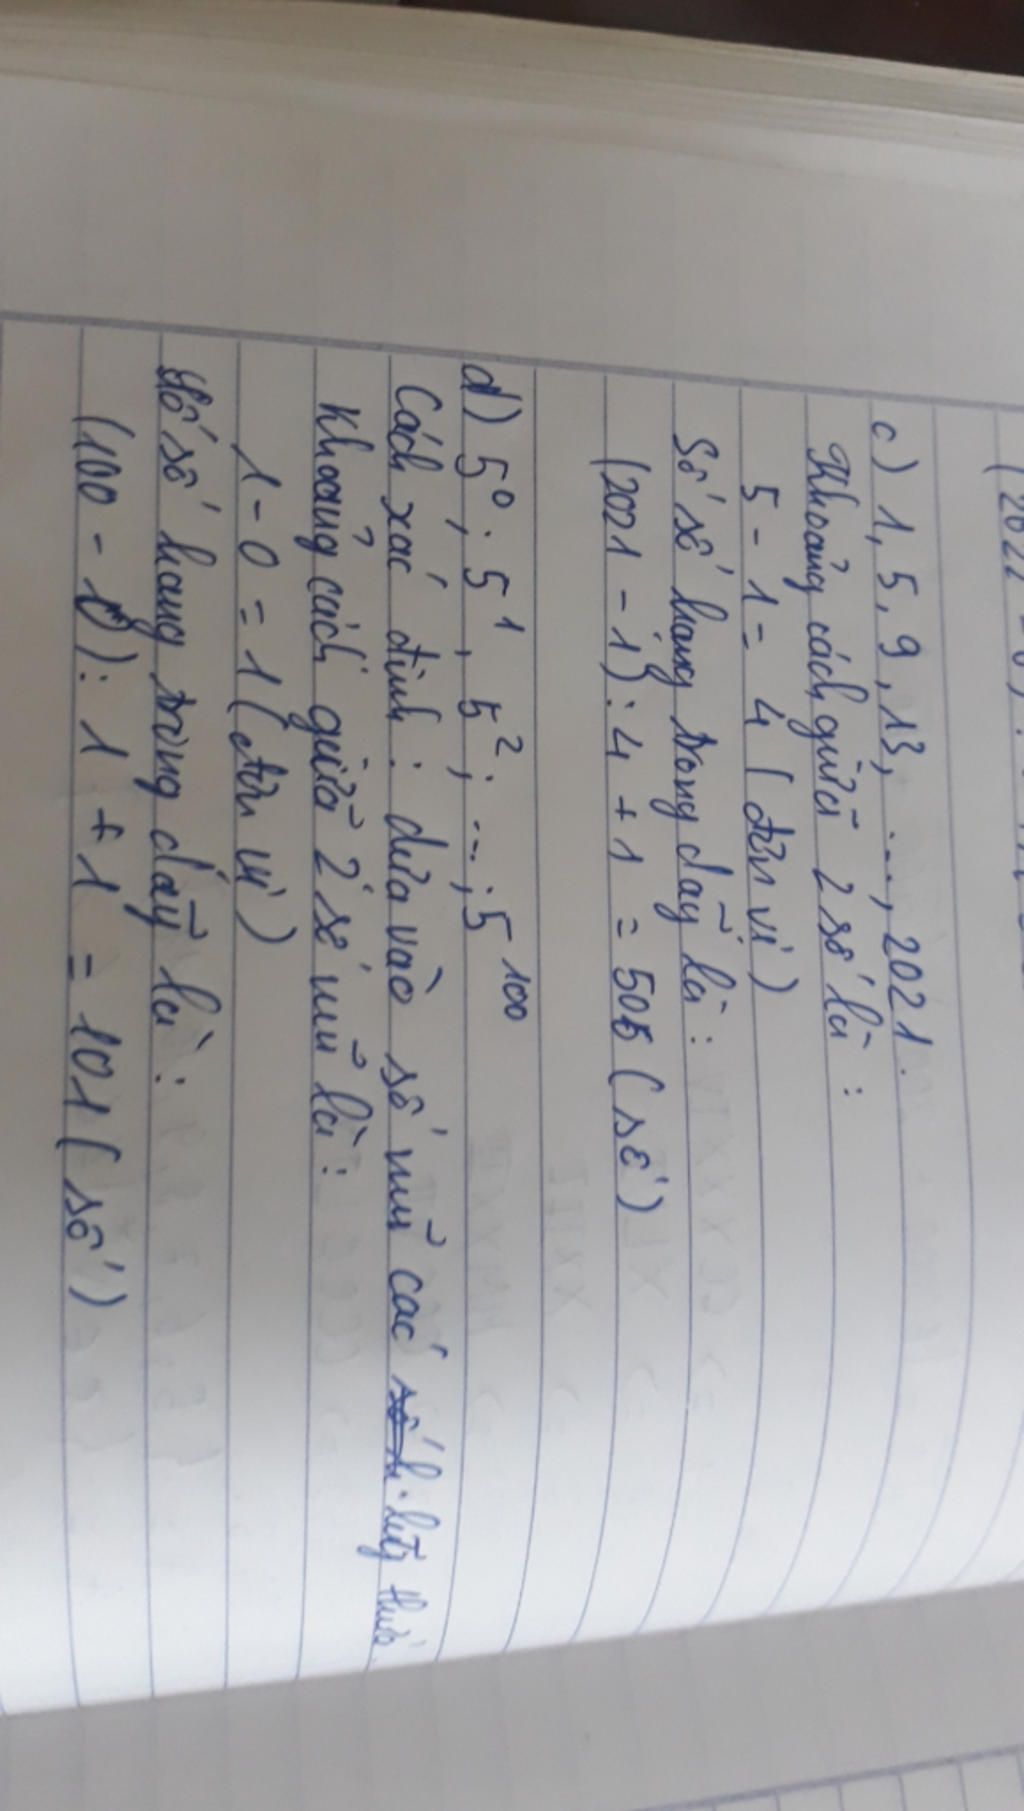 c) 1, 5, 9, 13, ..., 2021.
Khoảng cách giữa 2 số là :
5 - 1 = 4 (đơn vị)
Số số hạng trong dãy là :
(2021 - 1) : 4 + 1 = 506 (số)
d) 5⁰ ; 5¹ ; 5² ; ... ; 5¹⁰⁰
Cách xác định : dựa vào số mũ các lũy thừa.
Khoảng cách giữa 2 số mũ là :
1 - 0 = 1 (đơn vị)
Số số hạng trong dãy là :
(100 - 0) : 1 + 1 = 101 (số)